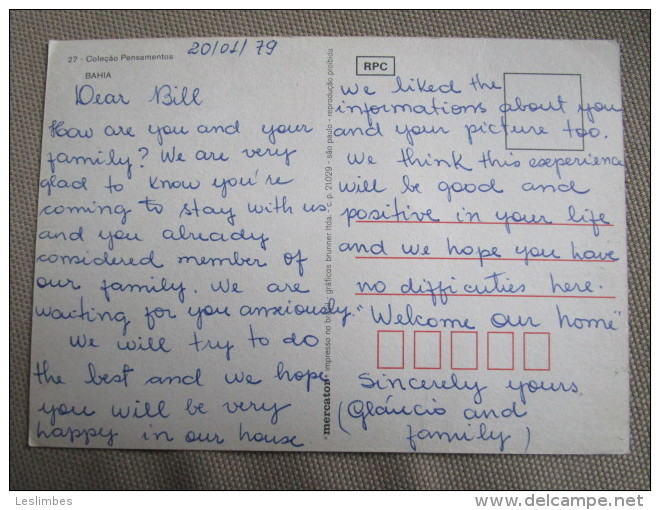 20/01/79
27 - Coleção Pensamentos
BAHIA
Dear Bill
How are you and your
family? We are very
glad to know you're
coming to stay with us
and you already
considered member of
our family. We are
waiting for you anxiously.
We will try to do
the best and we hope
you will be very
happy in our house
mercator impresso no brasil gráficos brunner ltda. são paulo - reprodução proibida
RPC
We liked the
informations about you
and your picture too.
We think this experience
will be good and
positive in your life
and we hope you have
no difficulties here.
"Welcome our home"
Sincerely yours
(Gláucio and
family)
Leslimbes
delcampe.net